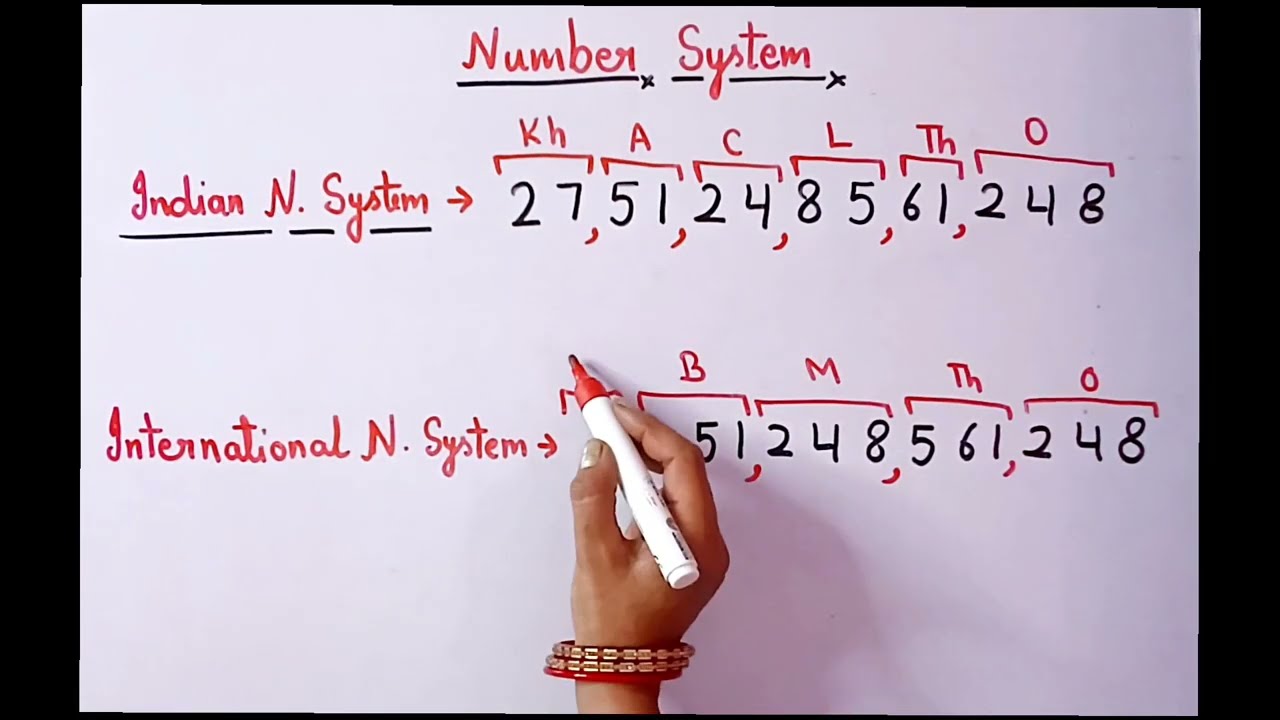 Number System
Kh A C L Th O
Indian N. System → 27,51,24,85,61,248
B M Th O
International N. System → 51,248,561,248